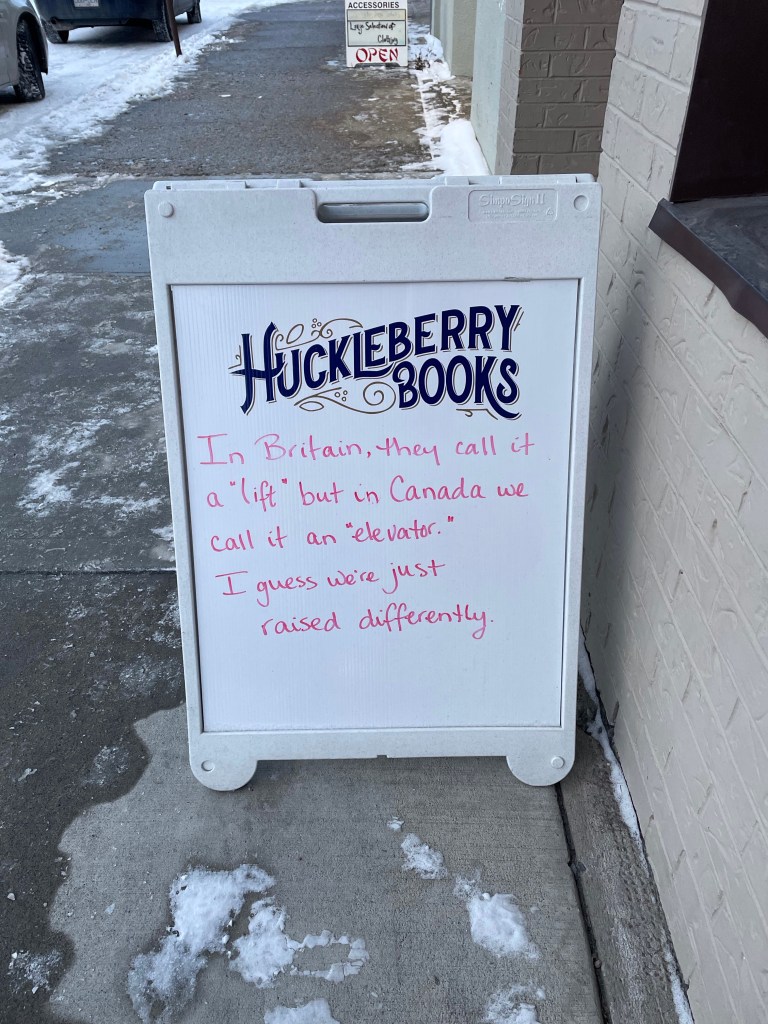 ACCESSORIES
Large Selection of
Clothing
OPEN
Shape Sign II
HUCKLEBERRY
BOOKS
In Britain, they call it
a "lift" but in Canada we
call it an "elevator."
I guess we're just
raised differently.